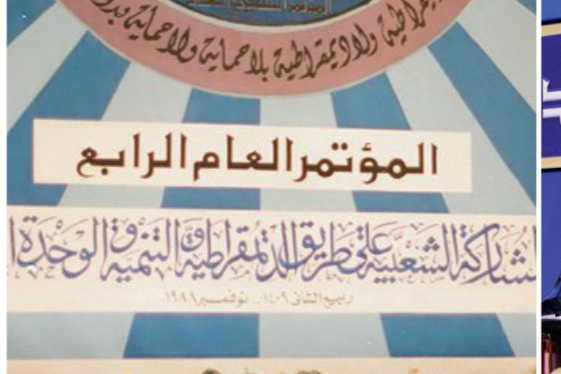 المؤتمر
يمقراطية ولاديمقراطية بلاحماية ولاحماية بدو
المؤتمر العام الرابع
لمشاركة الشعبية على طريق الديمقراطية والتنمية والوحدة
ربيع الثاني ١٤٠٩هـ نوفمبر ١٩٨٨